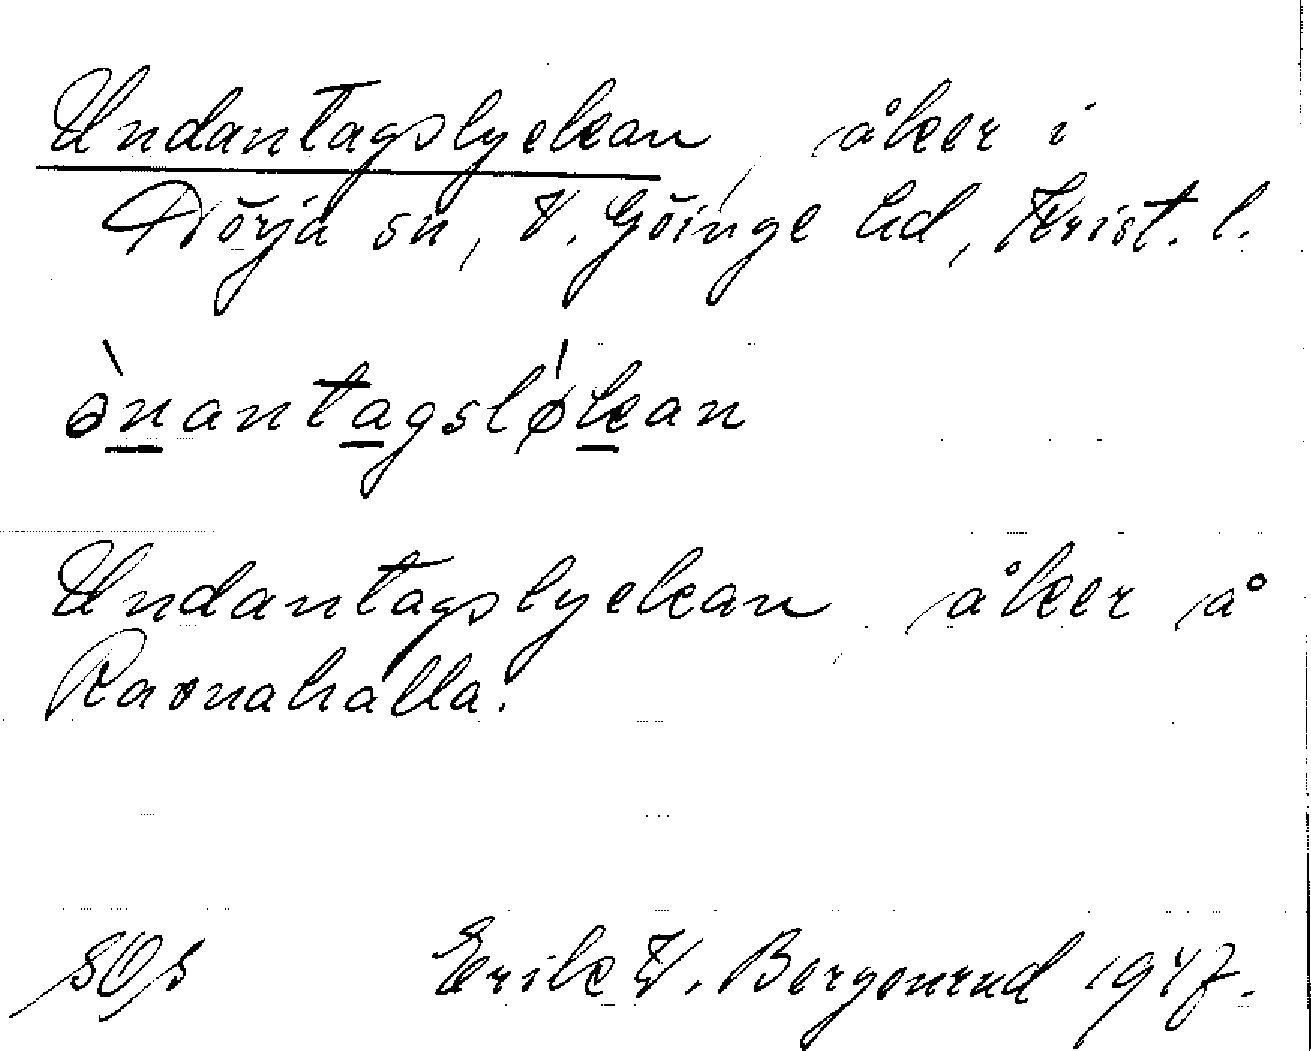 Undantagslyckan, åker i
Nörja sn, V. Göinge hd, Krist. l.
ə̀nantagsløḱan
Undantagslyckan, åker å
Ravnahalla.
SOS Erik W. Bergenrud 1947.